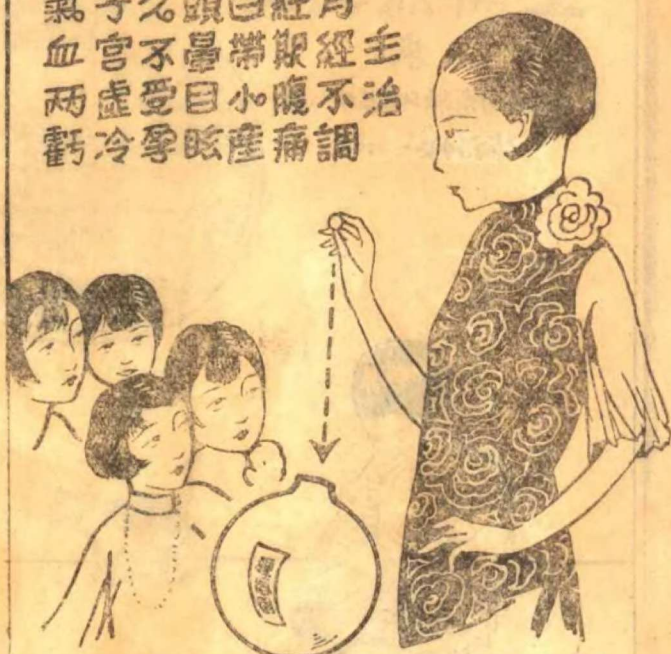 主治
月經不調
經期腹痛
白帶小產
頭暈目眩
久不受孕
子宮虛冷
氣血兩虧